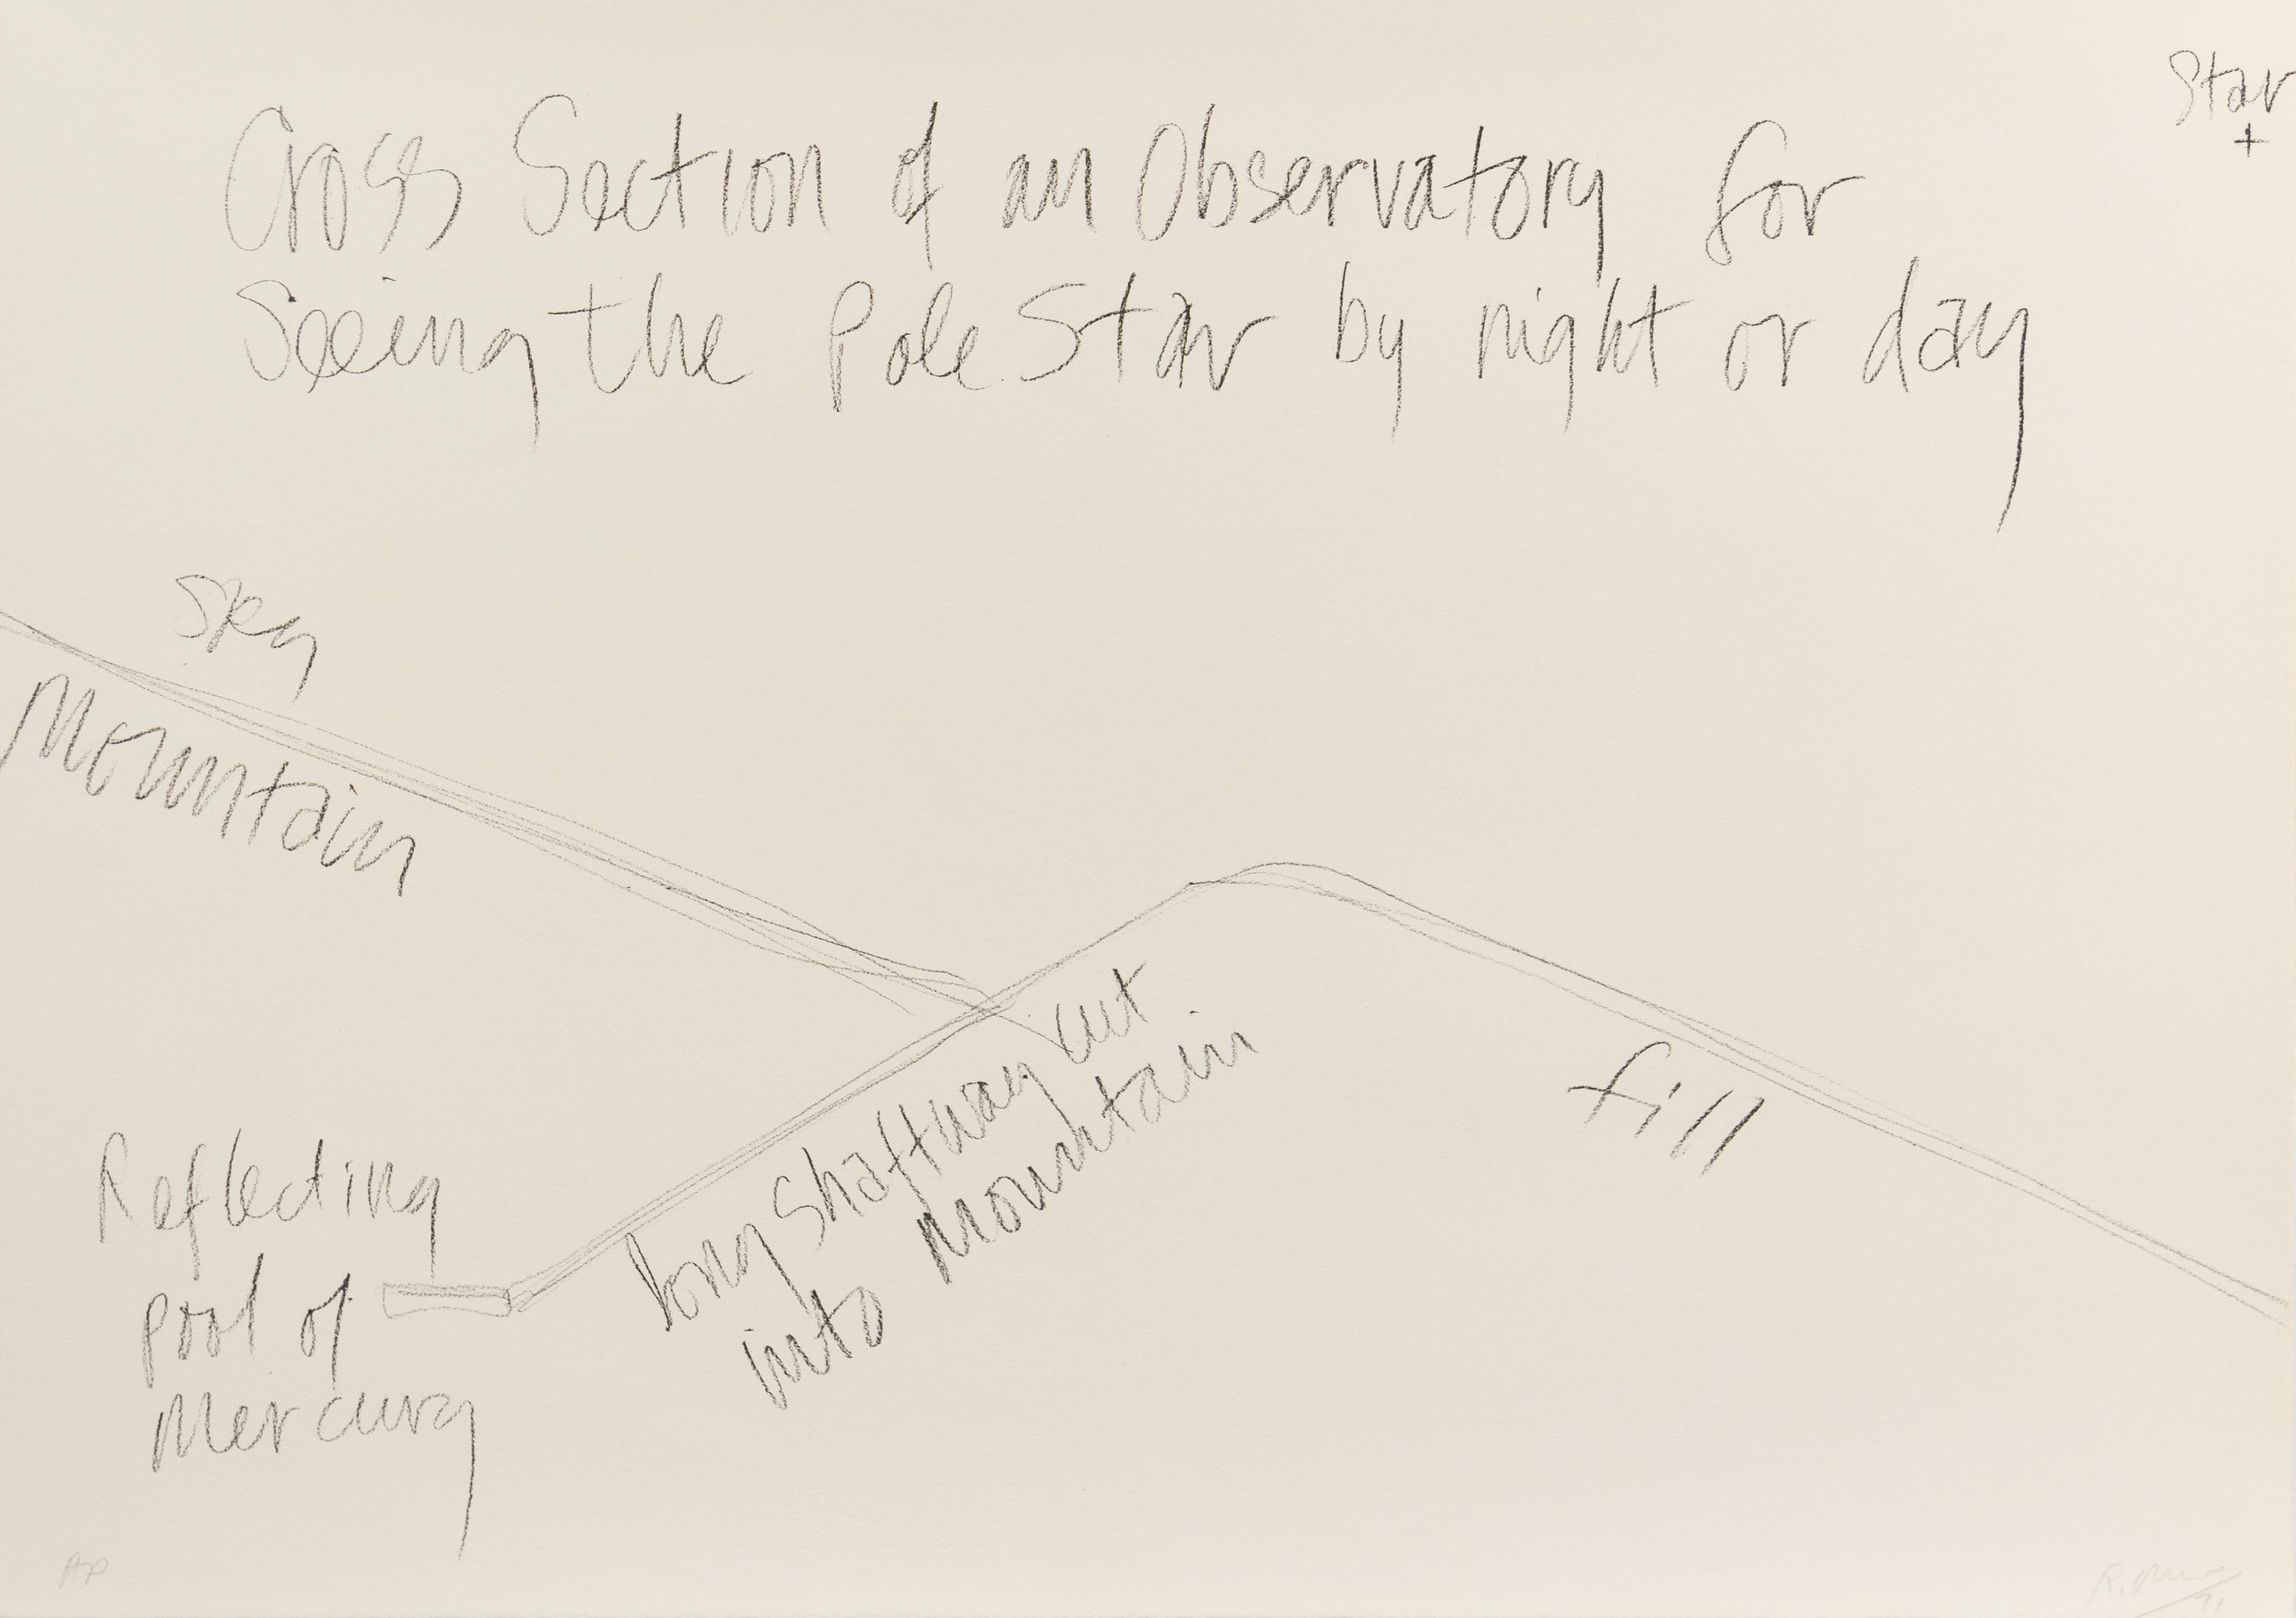 Star
+
Cross Section of an Observatory for
Seeing the Pole Star by night or day
Sky
Mountain
long Shaftway cut
into mountain
fill
Reflecting
pool of
Mercury
AP